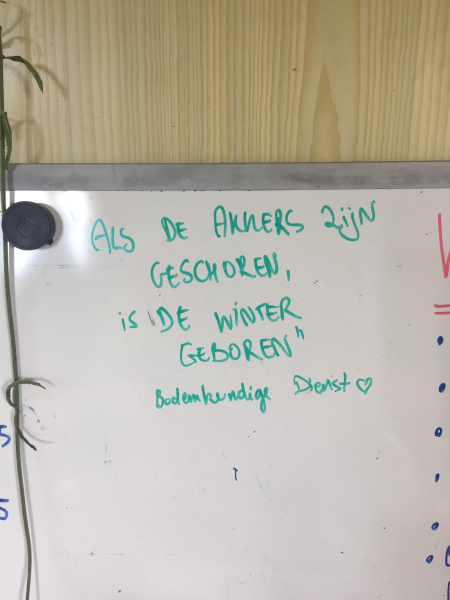 "ALS DE AKKERS ZijN
GESCHOREN,
is DE WiNTER
GEBOREN"
Bodemkundige Dienst ♡